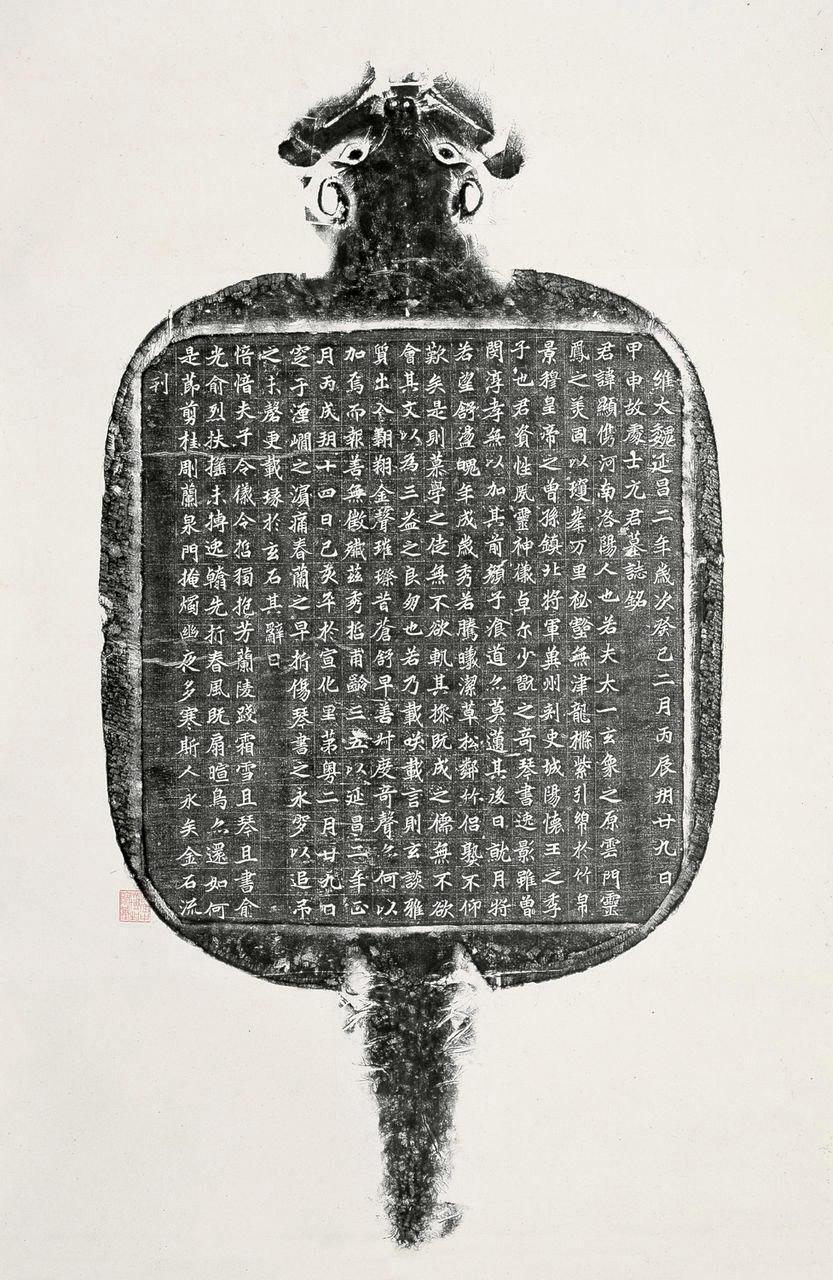 維大魏延昌二年歲次癸巳二月丙辰朔廿九日
甲申故處士元君墓誌銘
君諱顯儁河南洛陽人也若夫太一玄象之原雲門靈
鳳之美固以瓊峯万里祕壑無津龍櫾紫引綿於竹帛
景穆皇帝之曾孫鎮北將軍冀州刾史城陽懷王之季
子也君資性夙靈神儀卓尔少翫之奇琴書逸景雖曾
閔淳孝無以加其前顏子湌道亦莫邁其後日就月將
若望舒盪魄年成歲秀若騰曦潔草松鄰竹侶熟不仰
歎矣是則慕學之徒無不欲軌其操既成之儒無不欲
會其文以為三益之良朋也若乃載咲載言則玄談雅
質出仝翱翔金聲璀璨昔蒼舒早善叶度奇聲亦何以
加焉而報善無徵殲茲秀哲甫齡三五以延昌二年正
月丙戌朔十四日己亥卒於宣化里第粵二月廿九日
窆于瀍㵎之濱痛春蘭之早折傷琴書之永穸以追弔
之未罄更載琢於玄石其辭曰
愔愔夫子令儀令哲獨抱芳蘭陵踐霜雪且琴且書俞
光俞烈扶搖未摶逸翮先折春風既扇暄鳥亦還如何
是節剪桂彫蘭泉門掩燭幽夜多寒斯人永矣金石流
刊